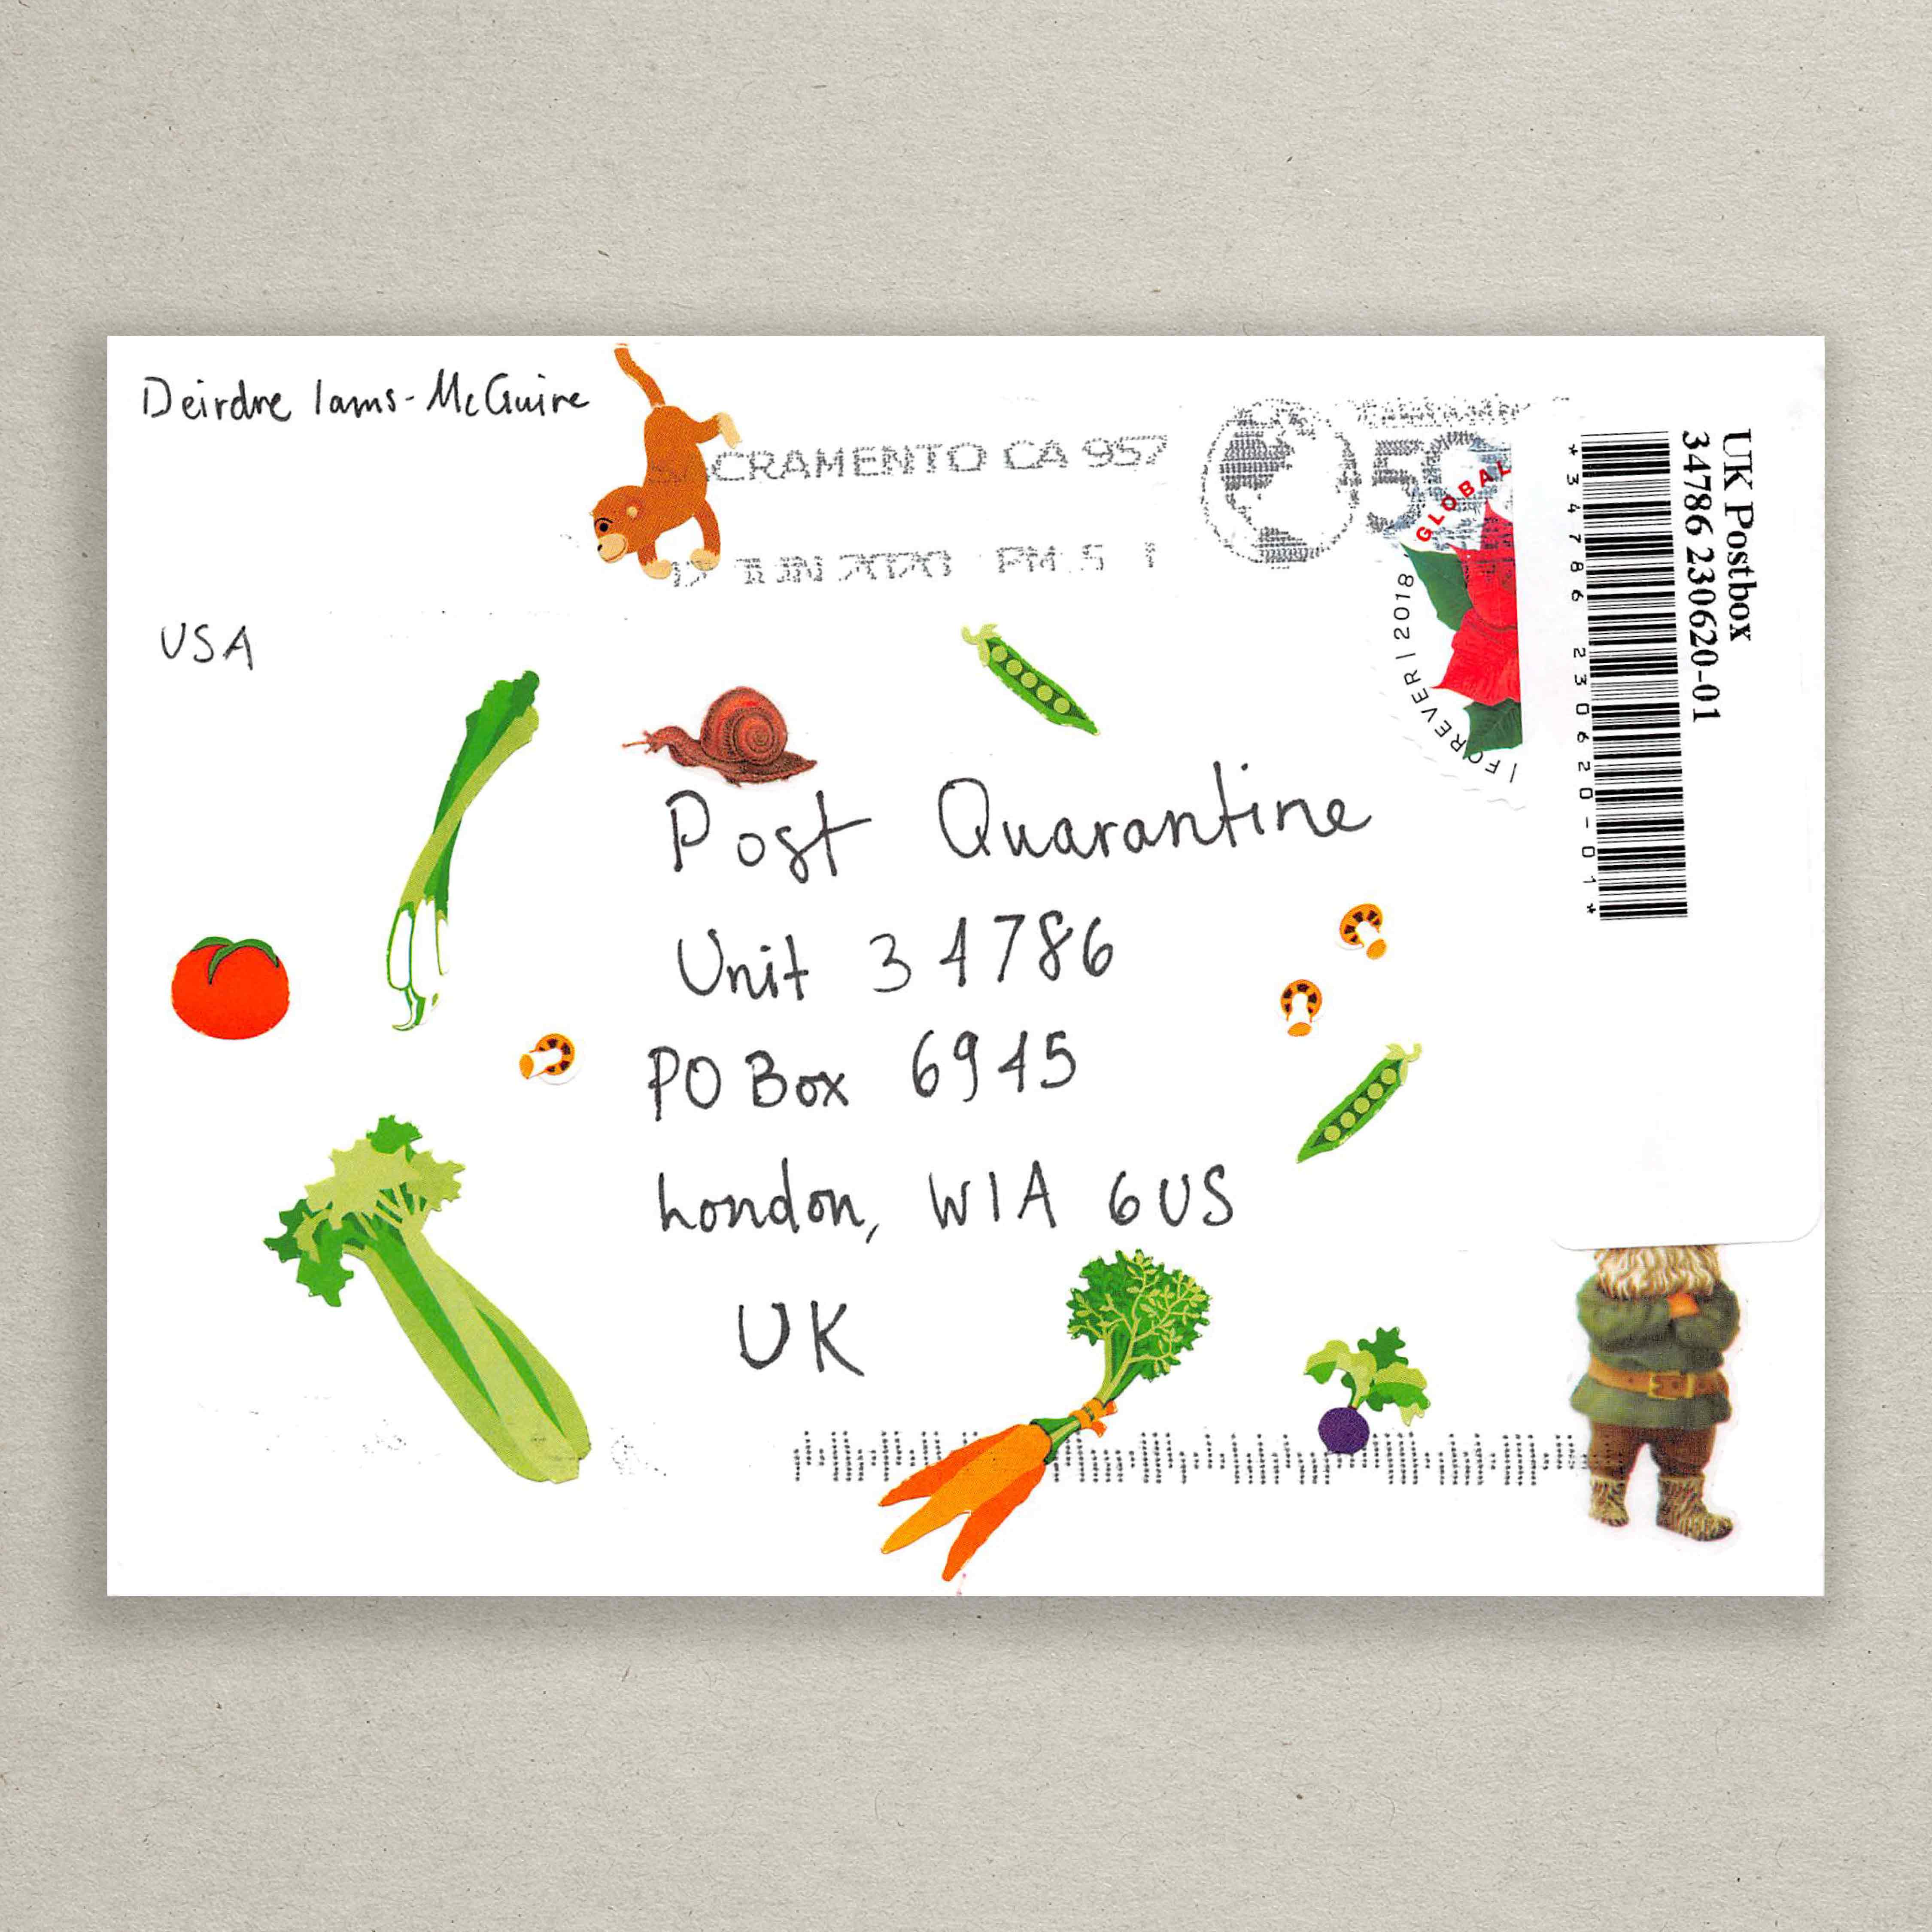 Deirdre Iams-McGuire
SACRAMENTO CA 957
JUN 2020 PM 5 1
50
GLOBAL
FOREVER | 2018
UK Postbox
34786 230620-01
*34786 230620-01*
USA
Post Quarantine
Unit 34786
PO Box 6945
London, W1A 6US
UK